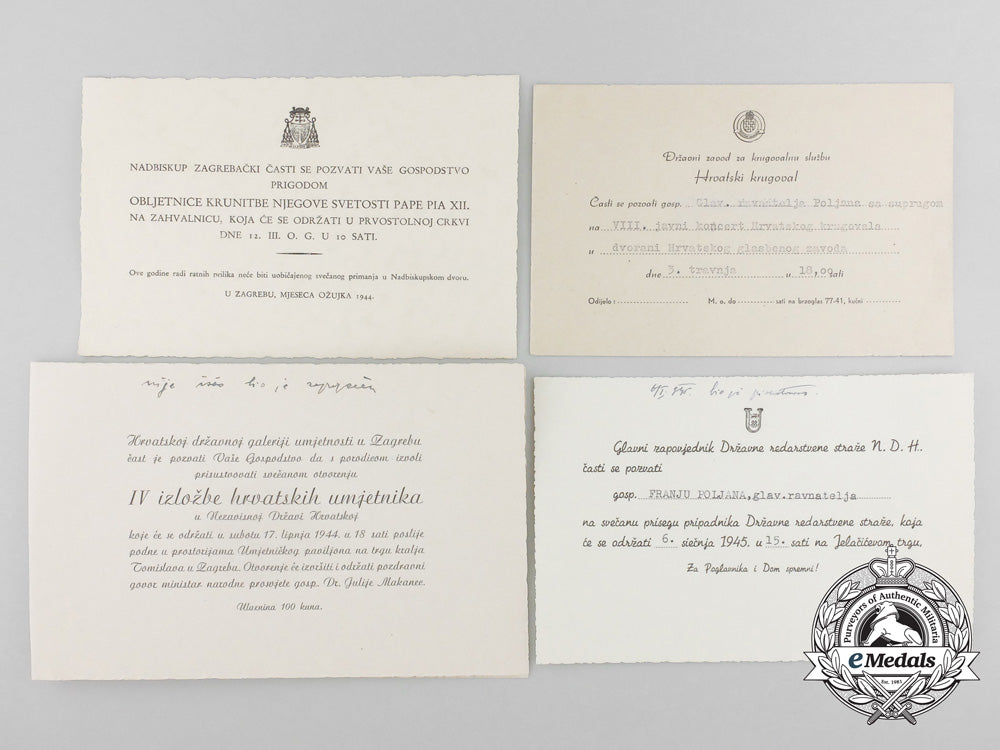 NADBISKUP ZAGREBAČKI ČASTI SE POZVATI VAŠE GOSPODSTVO
PRIGODOM
OBLJETNICE KRUNITBE NJEGOVE SVETOSTI PAPE PIA XII.
NA ZAHVALNICU, KOJA ĆE SE ODRŽATI U PRVOSTOLNOJ CRKVI
DNE 12. III. O. G. U 10 SATI.
Ove godine radi ratnih prilika neće biti uobičajenog svečanog primanja u Nadbiskupskom dvoru.
U ZAGREBU, MJESECA OŽUJKA 1944.
Državni zavod za krugovalnu službu
Hrvatski krugoval
Časti se pozvati gosp. Glav. ravnatelja Poljana sa suprugom
na VIII. javni koncert Hrvatskog krugovala
u dvorani Hrvatskog glasbenog zavoda
dne 3. travnja u 18,00 sati
Odijelo: M. o. do sati na brzoglas 77-41, kućni
nije bio je
Hrvatskoj državnoj galeriji umjetnosti u Zagrebu
čast je pozvati Vaše Gospodstvo da s porodicom izvoli
prisustvovati svečanom otvorenju
IV izložbe hrvatskih umjetnika
u Nezavisnoj Državi Hrvatskoj
koje će se održati u subotu 17. lipnja 1944. u 18 sati poslije
podne u prostorijama Umjetničkog paviljona na trgu kralja
Tomislava u Zagrebu. Otvorenje će izvršiti i održati pozdravni
govor ministar narodne prosvjete gosp. Dr. Julije Makanec.
Ulaznina 100 kuna.
bio je
Glavni zapovjednik Državne redarstvene straže N. D. H.
časti se pozvati
gosp. FRANJU POLJANA, glav.ravnatelja
na svečanu prisegu pripadnika Državne redarstvene straže, koja
će se održati 6. siečnja 1945. u 15. sati na Jelačićevom trgu.
Za Poglavnika i Dom spremni!
Purveyors of Authentic Militaria
eMedals
est. 1985